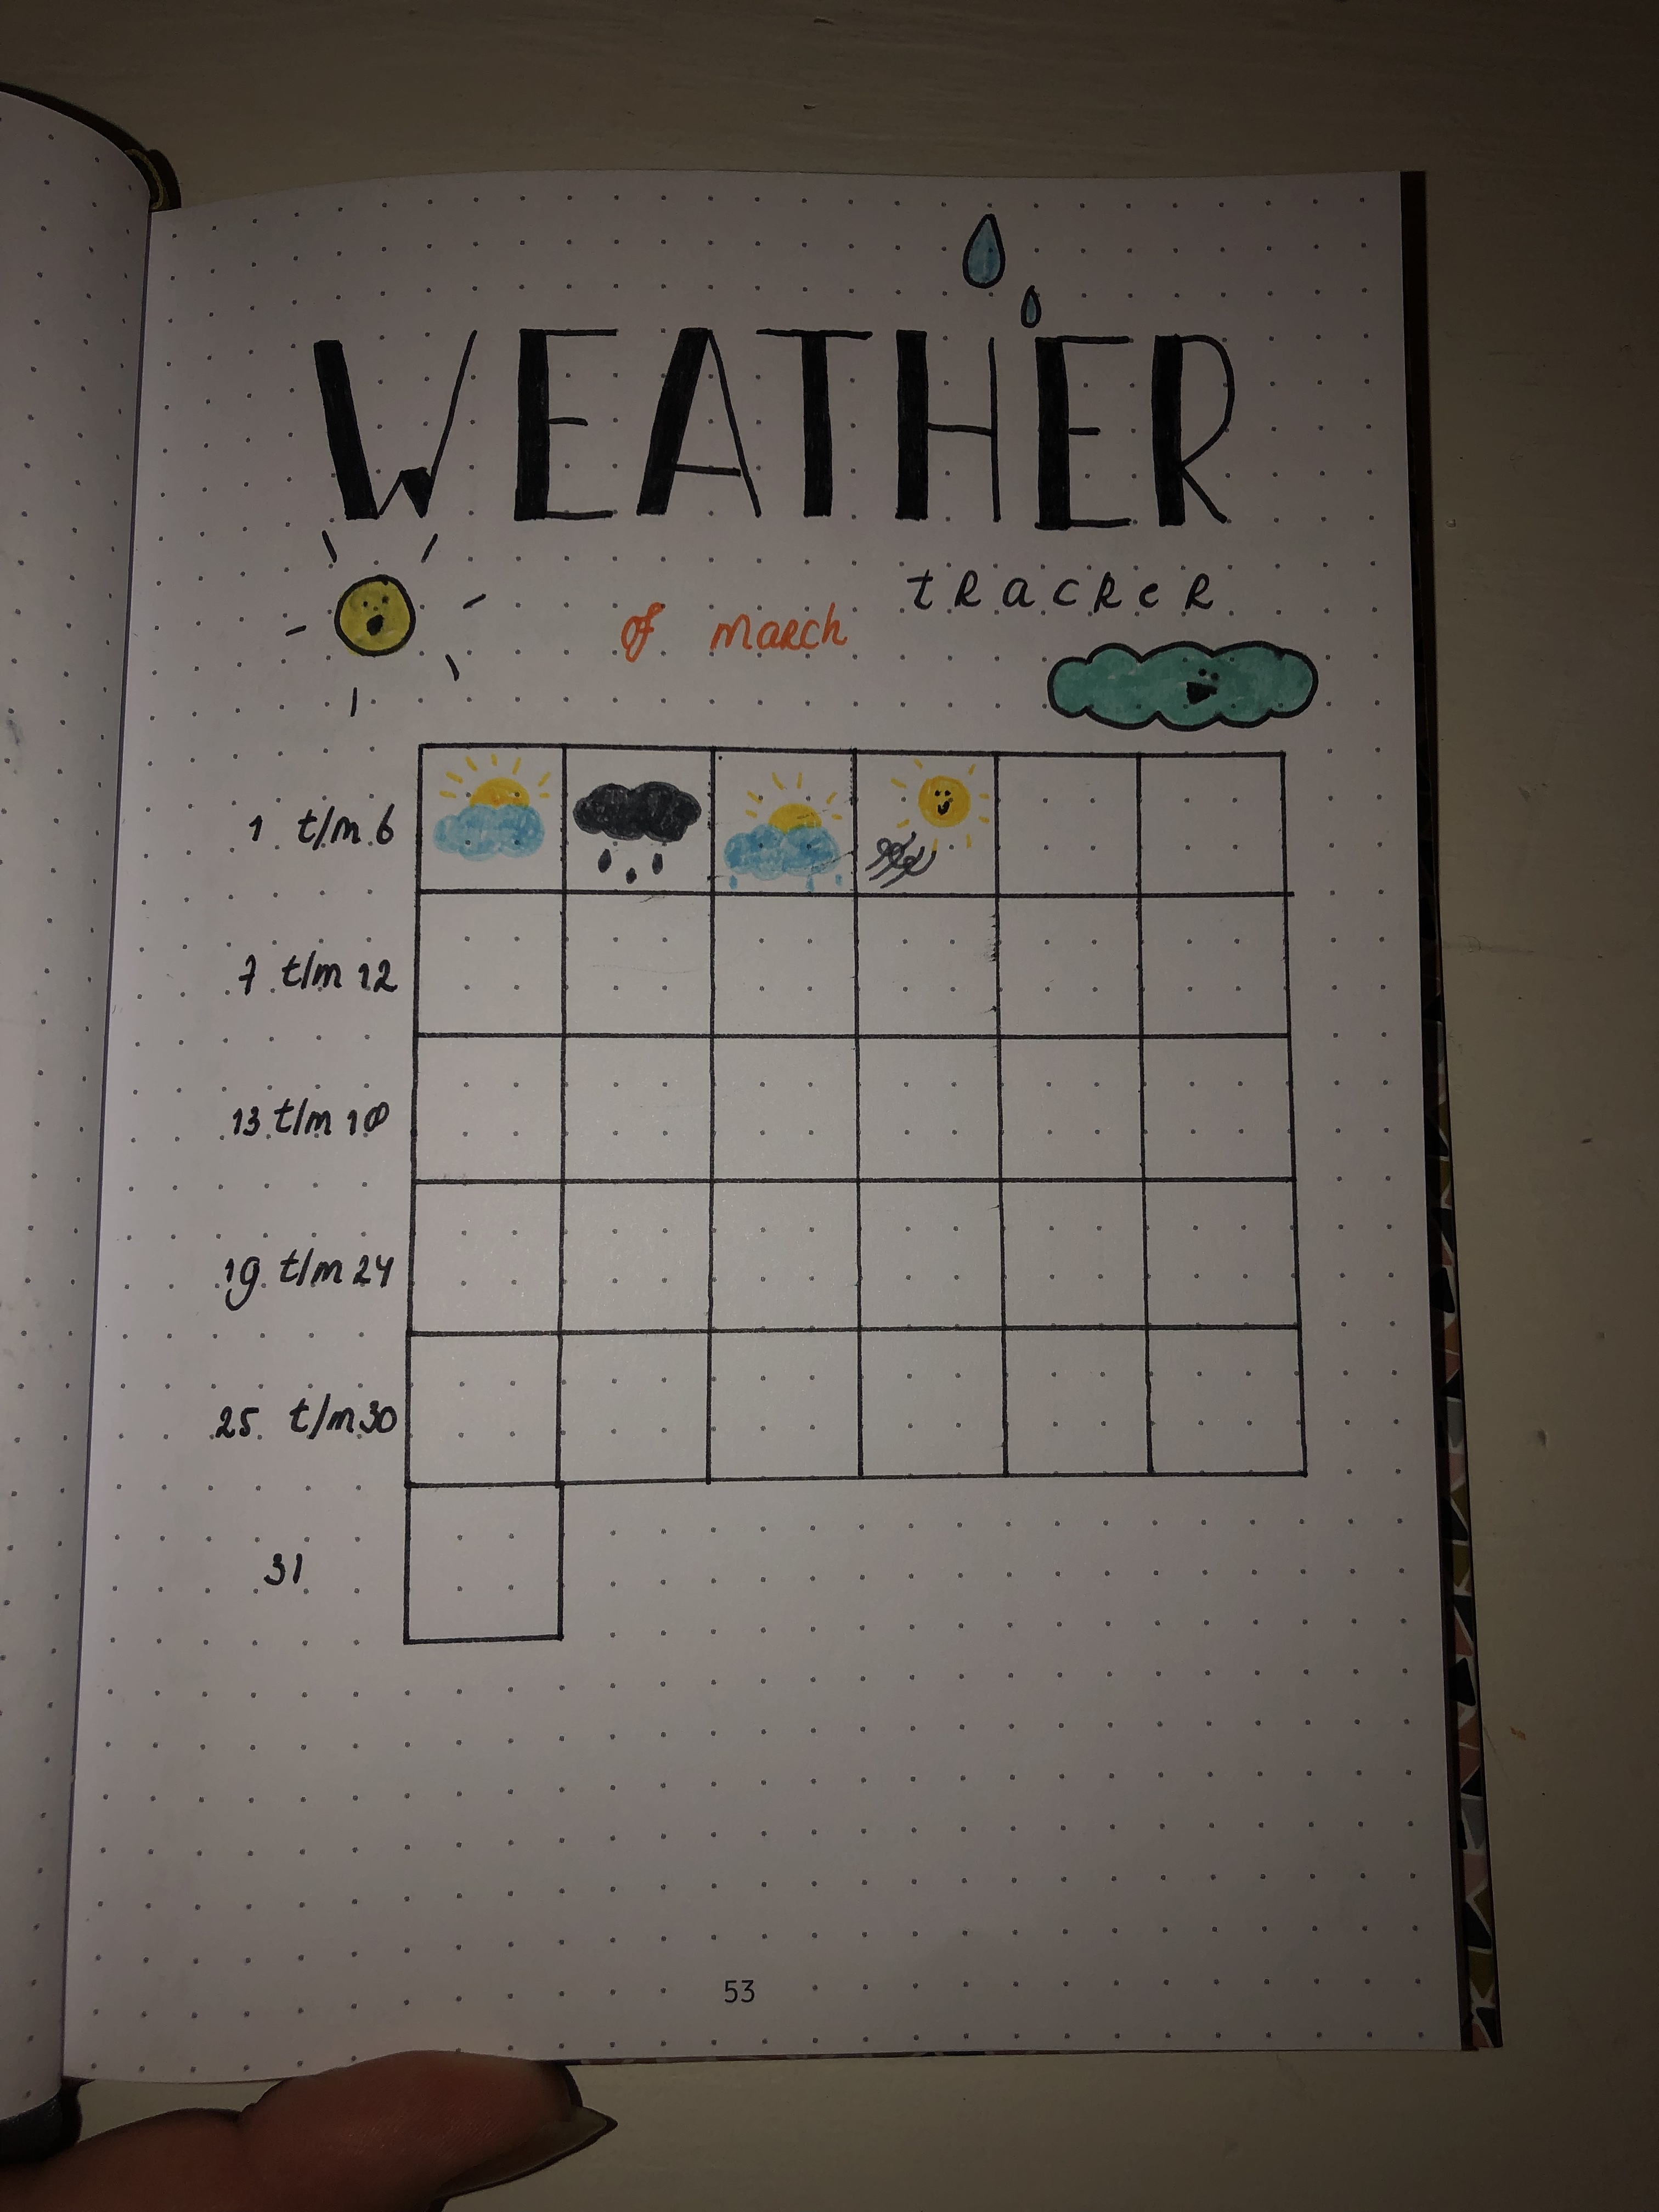 WEATHER
tracker
of march
1 t/m 6
7 t/m 12
13 t/m 18
19 t/m 24
25 t/m 30
31
53